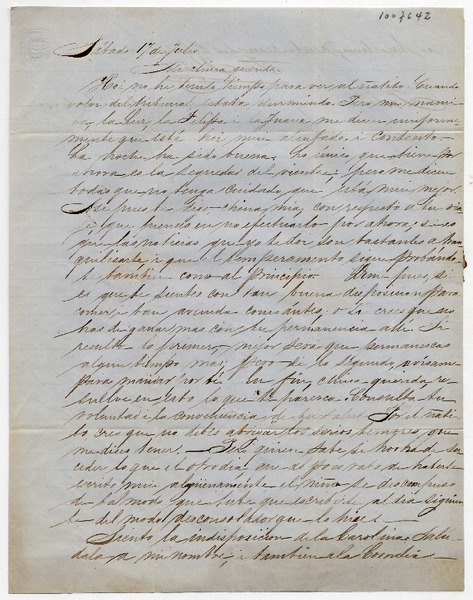 1007642
Sábado 17 de Julio
Mi china querida
Hoi no he tenido tiempo para ver al ñatito. Cuando
volví del tribunal estaba durmiendo. Pero mi mamá
la Luz, la Felipa i la Juana me dicen uniforme
mente que está hoi mui aliviado i contento.
La noche ha sido buena. Lo único que tiene por
ahora es la sequedad del vientre; pero me dicen
todas que no tenga cuidado que está mui mejor.
Así pues te digo, china mia, con respecto a tu via
je que pienses en no efectuarlo por ahora, si es
que las noticias que yo te doi son bastantes a tran
quilizarte, i que el temperamento sigue probándo
te tambien como al principio. Dime pues, si
es que te sientes con tan buena disposicion para
comer i tan avenida como ántes; o si crees que no
has de ganar mas con tu permanencia allí. Si
resulta lo primero, mejor será que permanezcas
algun tiempo mas; pero si lo segundo, avísame
para mandar por ti. En fin, china querida, re
suelve en esto lo que te parezca. Consulta tu
voluntad i la conveniencia de tu salud. Por el ñati
to creo que no debes abrigar los serios temores que
me dices tener. Pero quien sabe si nos ha de su
ceder lo que el otro dia, que al poco rato de haberte
escrito mui alegremente el niño se descompuso
de tal modo que tuve que escribirte al dia siguien
te del modo desconsolado que lo hice.
Siento la indisposicion de la Carolina. Salú
dala a mi nombre, i tambien a la Cornelia